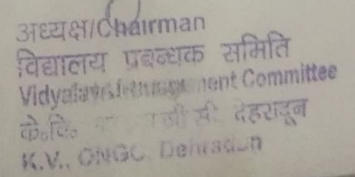 अध्यक्ष/Chairman
विद्यालय प्रबन्धक समिति
Vidyalaya Management Committee
के०वि० जी सी देहरादून
K.V., ONGC Dehradun